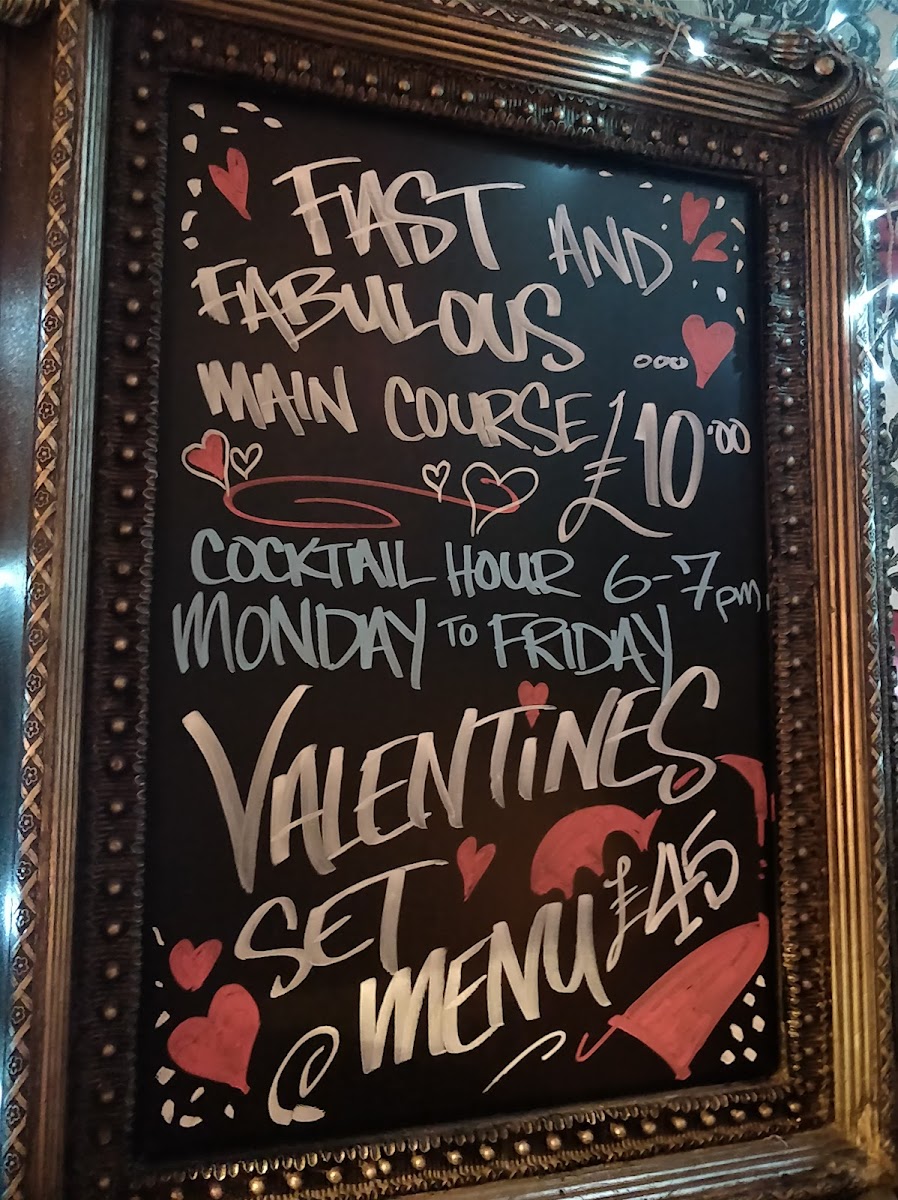 FAST AND
FABULOUS
MAIN COURSE £10.00
COCKTAIL HOUR 6-7pm
MONDAY TO FRIDAY
VALENTiNES
SET
MENU £45